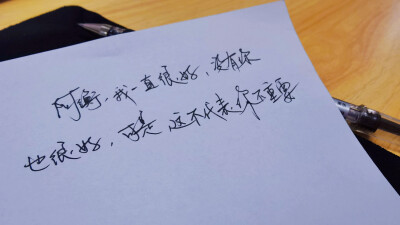 阿衡,我一直很好,没有你
也很好,可是这不代表你不重要